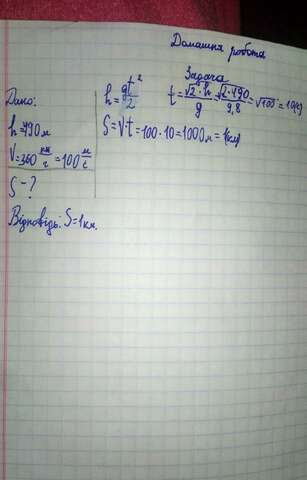 Домашня робота
Задача
Дано:
h=490м
V=360 км/г=100 м/с
S-?
h=gt²/2
t=√2·h/g=√2·490/9,8=√100=10(с)
S=V·t=100·10=1000м=1(км)
Відповідь: S=1км.